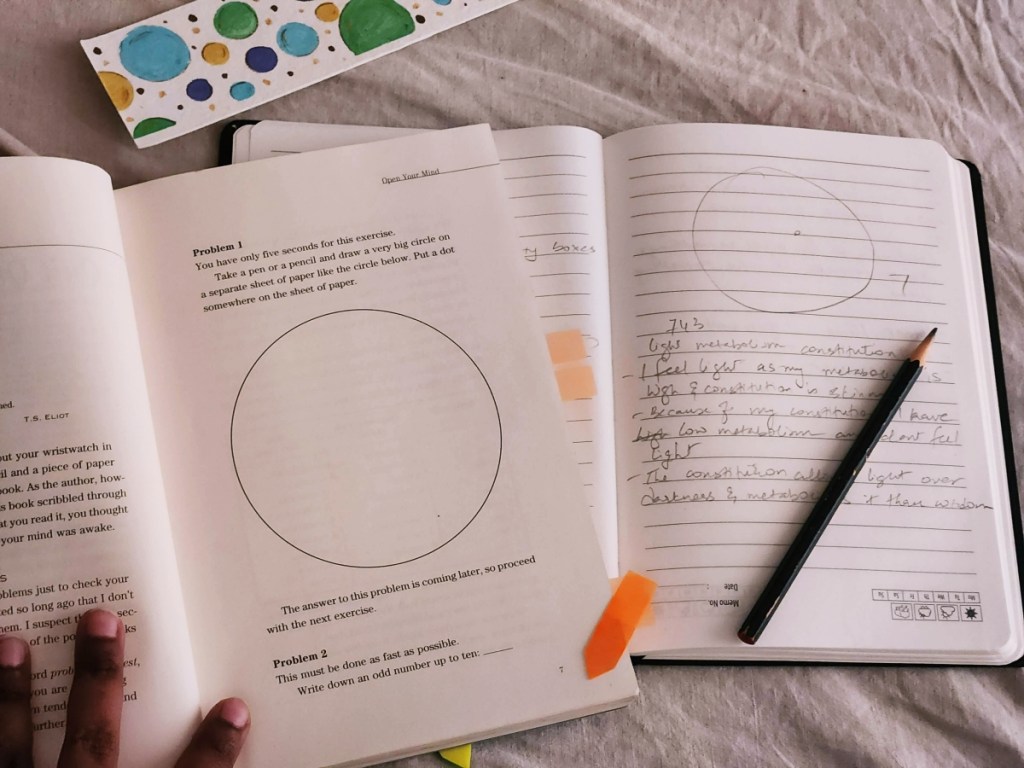 ned.
T.S. ELIOT
out your wristwatch in
il and a piece of paper
book. As the author, how-
s book scribbled through
at you read it, you thought
your mind was awake.
S
oblems just to check your
ted so long ago that I don't
hem. I suspect sec-
of the
ord
you are
n tend nd
urther
Open Your Mind
Problem 1
You have only five seconds for this exercise.
Take a pen or a pencil and draw a very big circle on
a separate sheet of paper like the circle below. Put a dot
somewhere on the sheet of paper.
The answer to this problem is coming later, so proceed
with the next exercise.
Problem 2
This must be done as fast as possible.
Write down an odd number up to ten:
7
boxes
7
743
light metabolism constitution
- I feel light as my metabolism is
high & constitution is
- Because of my constitution I have
low metabolism and dont feel
light
- The constitution light over
darkness & it than wisdom
Memo No.
Date
Mo Tu We Th Fr Sa Su